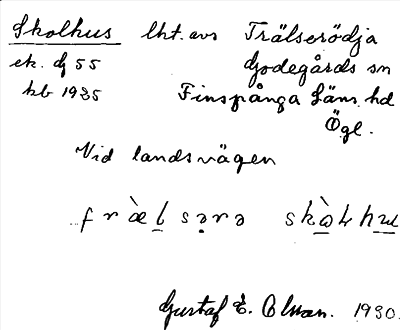 Skolhus lht. avs Trälserödja
ek. dj 55 Godegårds sn
hb 1935 Finspånga Läns hd
Ögl.
Vid landsvägen
fræ̀ḷsə̣rə skò̱lhu̱s
Gustaf E. Olsson. 1930.